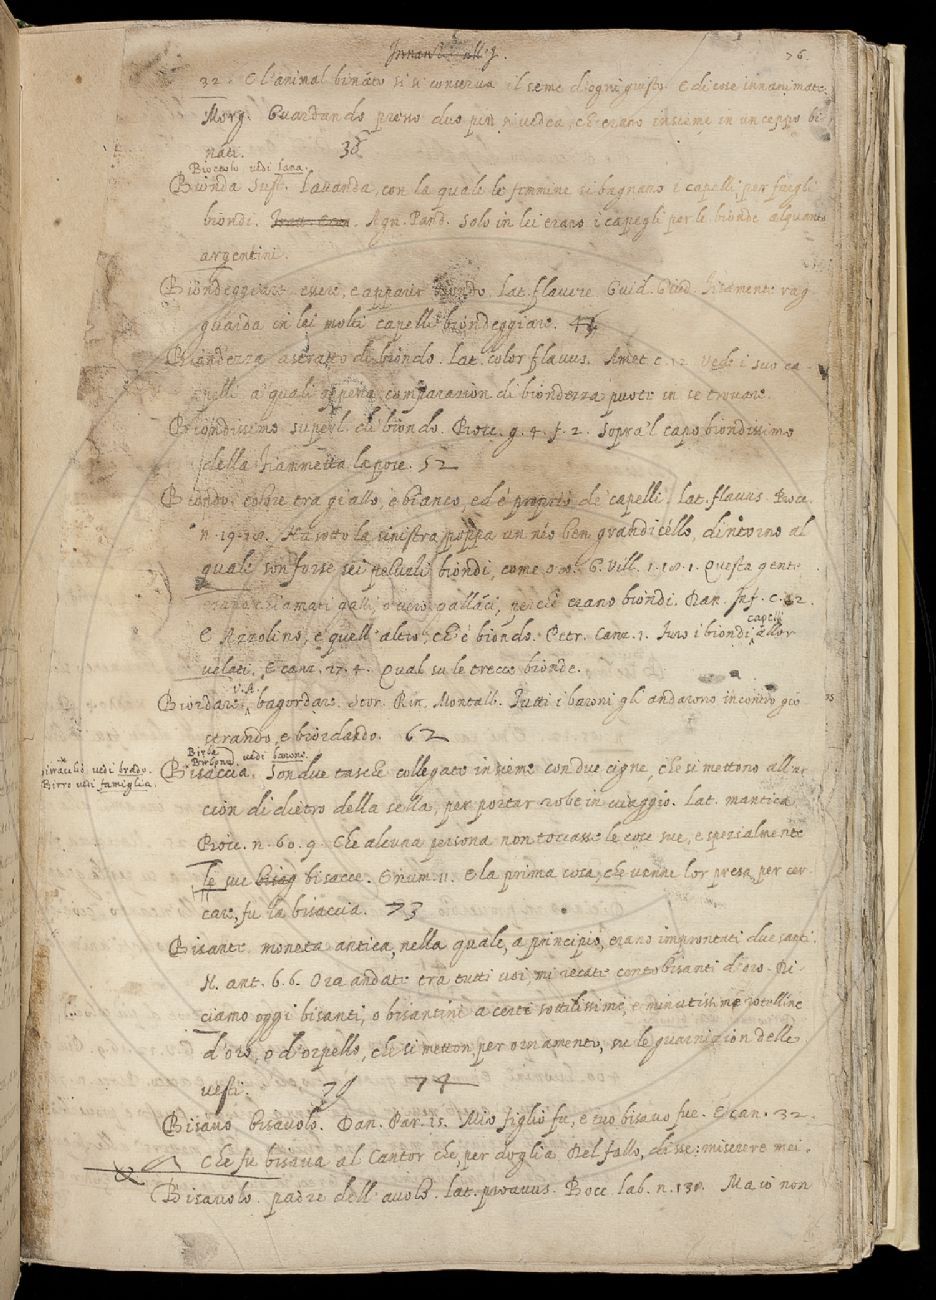 76.
32. E l'animal bináto sì si conserva il seme d'ogni giusto. E di cose innanimate.
Morg. Guardando presso duo pin si vedea, ch' erano insieme in un ceppo bi
náti. 38
Bioccolo vedi lana.
Bionda Sust. Lavanda, con la quale le femmine si bagnano i capelli per fargli
biondi. Agn. Pand. Solo in lei erano i capegli per le bionde alquanto
argentini.
Biondeggiare essere, e apparir biondo. Lat. flavere. Guid. Giud.
guarda in lei molti capelli biondeggiare.
Biondezza astratto di biondo. Lat. color flavus. Amet. c. 12. Vede i suo ca-
pelli a' quali comparazion di biondezza puote in se trovare.
Biondissimo superl. di biondo. Bocc. g. 4. f. 2. Sopra 'l capo biondissimo
della Fiammetta la pose. 52
Biondo. colore tra giallo, e bianco, ed è proprio de' capelli. Lat. flavus. Bocc.
n. 19. Ha sotto la sinistra poppa un néo ben grandicéllo, dintorno al
quale son forse sei peluzzi biondi, come oro. G. Vill. 1. 18. 1. Questa gente
erano chiamati galli, o vero gallàci, perchè erano biondi. Dan. Inf. c. 12.
E Azzolino, e quell' altro, ch' è biondo. Petr. Canz. 1. Juro i biondi capelli allor
velati. E canz. 27. 4. Qual su le trecce bionde.
V. A.
Biordare, bagordare. Stor. Rin. Montalb. Tutti i baroni gli andarono incontro gio
strando, e biordando. 62
Birba
Birbone vedi barone.
vedi bravo.
Birro vedi famiglia.
Bisaccia. Son due tasche collegate insieme con due cigne, che si mettono all'ar
cion di dietro della sella, per portar robe in viaggio. Lat. mantica.
Bocc. n. 60. 9. Che alcuna persona non toccasse le cose sue, e spezialmente
le sue bisag bisacce. E num. 11. E la prima cosa, che venne lor presa per cer-
care, fu la bisaccia. 73
Bisante. moneta antica, nella quale, a principio, erano improntati due santi.
N. ant. 6. 6. Ora andate tra tutti voi, mi recate cento bisanti d'oro. Di-
ciamo oggi bisanti, o bisantini a certe sottilissime, e minutissime rotelline
d'oro, o d'orpello, che si metton, per ornamento, su le guarnizion delle
vesti. 74
Bisavo bisavolo. Dan. Par. 15. Mio figlio fu, e tuo bisavo fue. E can. 32.
Che fu bisava al Cantor che, per doglia Del fallo, disse: miserere mei.
Bisavolo. padre dell' avolo. Lat. proavus. Bocc. lab. n. 130. Ma io non